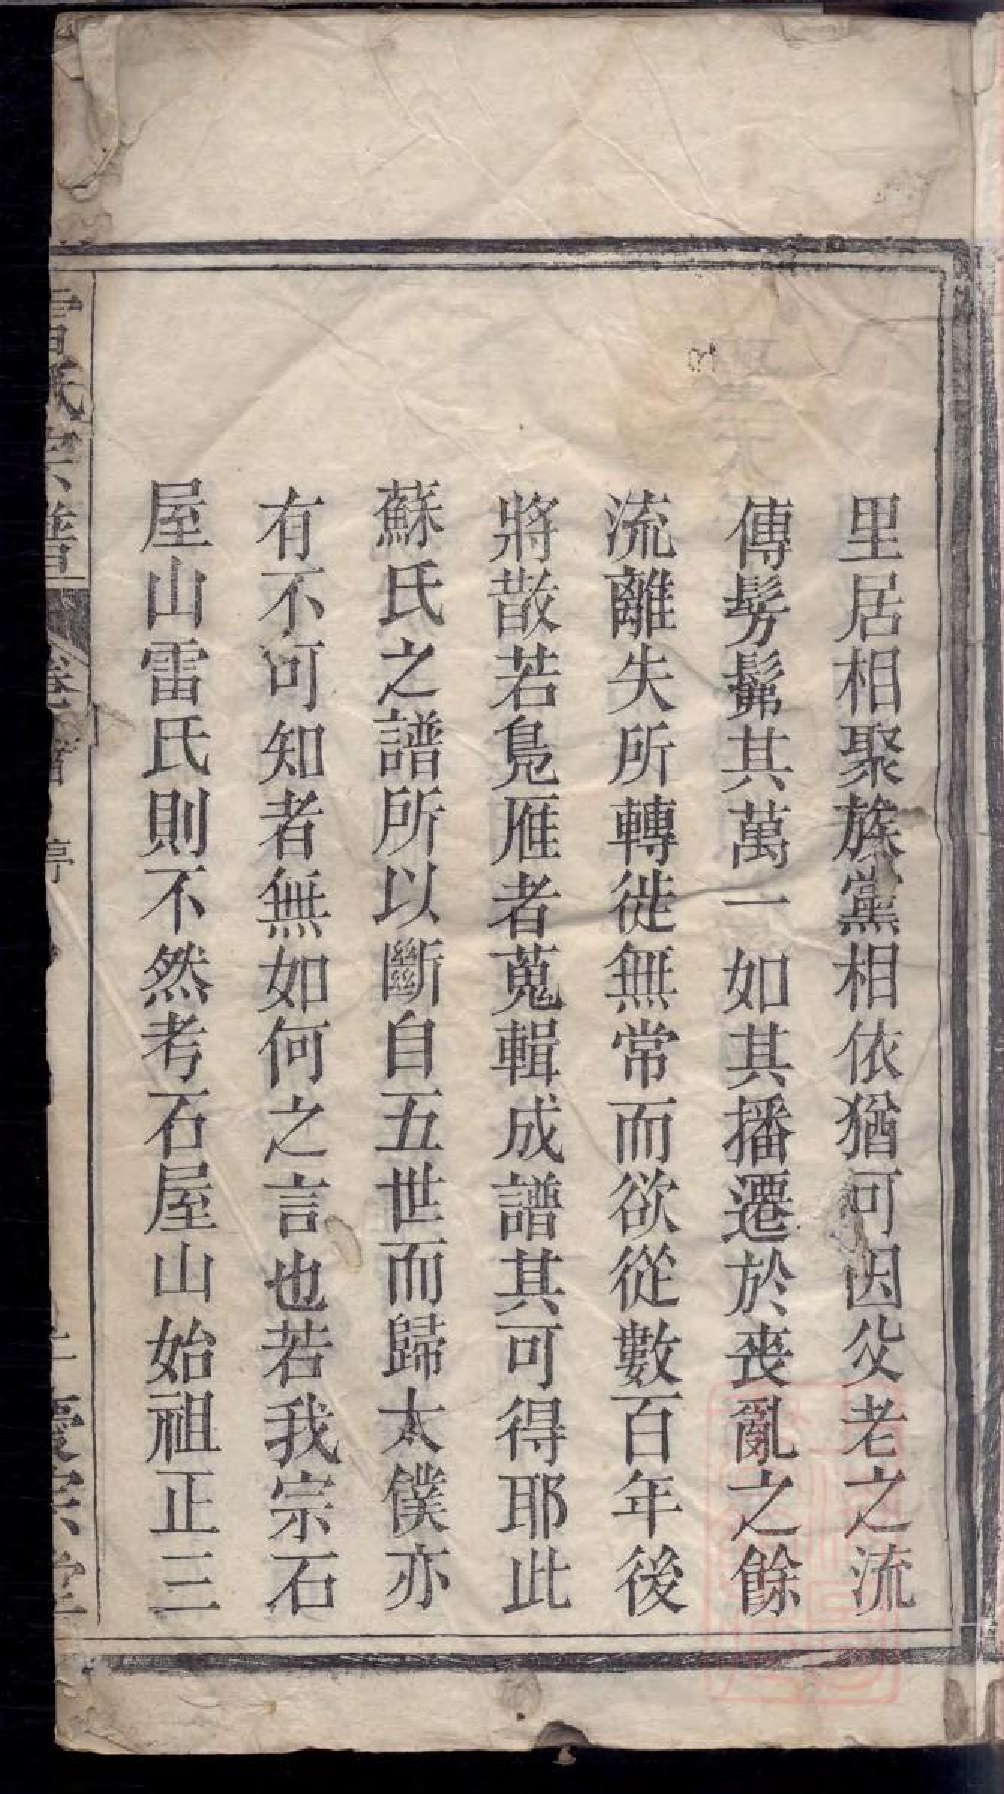 里居相聚族黨相依猶可因父老之流
傳髣髴其萬一如其播遷於喪亂之餘
流離失所轉徙無常而欲從數百年後
將散若鳧雁者蒐輯成譜其可得耶此
蘇氏之譜所以斷自五世而歸太僕亦
有不可知者無如何之言也若我宗石
屋山雷氏則不然考石屋山始祖正三
雷氏宗譜 卷首